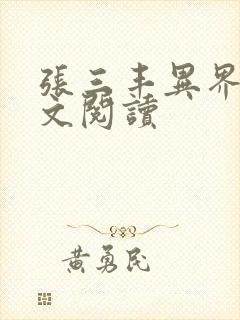 張三丰異界
文閱讀
黃勇民